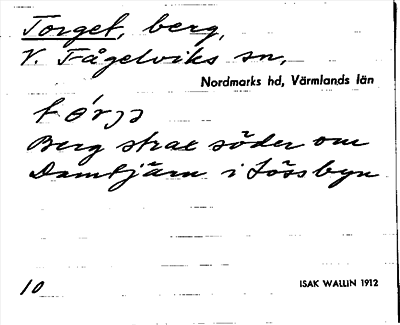 Torget, berg,
V. Fågelviks sn,
Nordmarks hd, Värmlands län
Berg strax söder om
Damtjärn i Lössbyn
10 ISAK WALLIN 1912